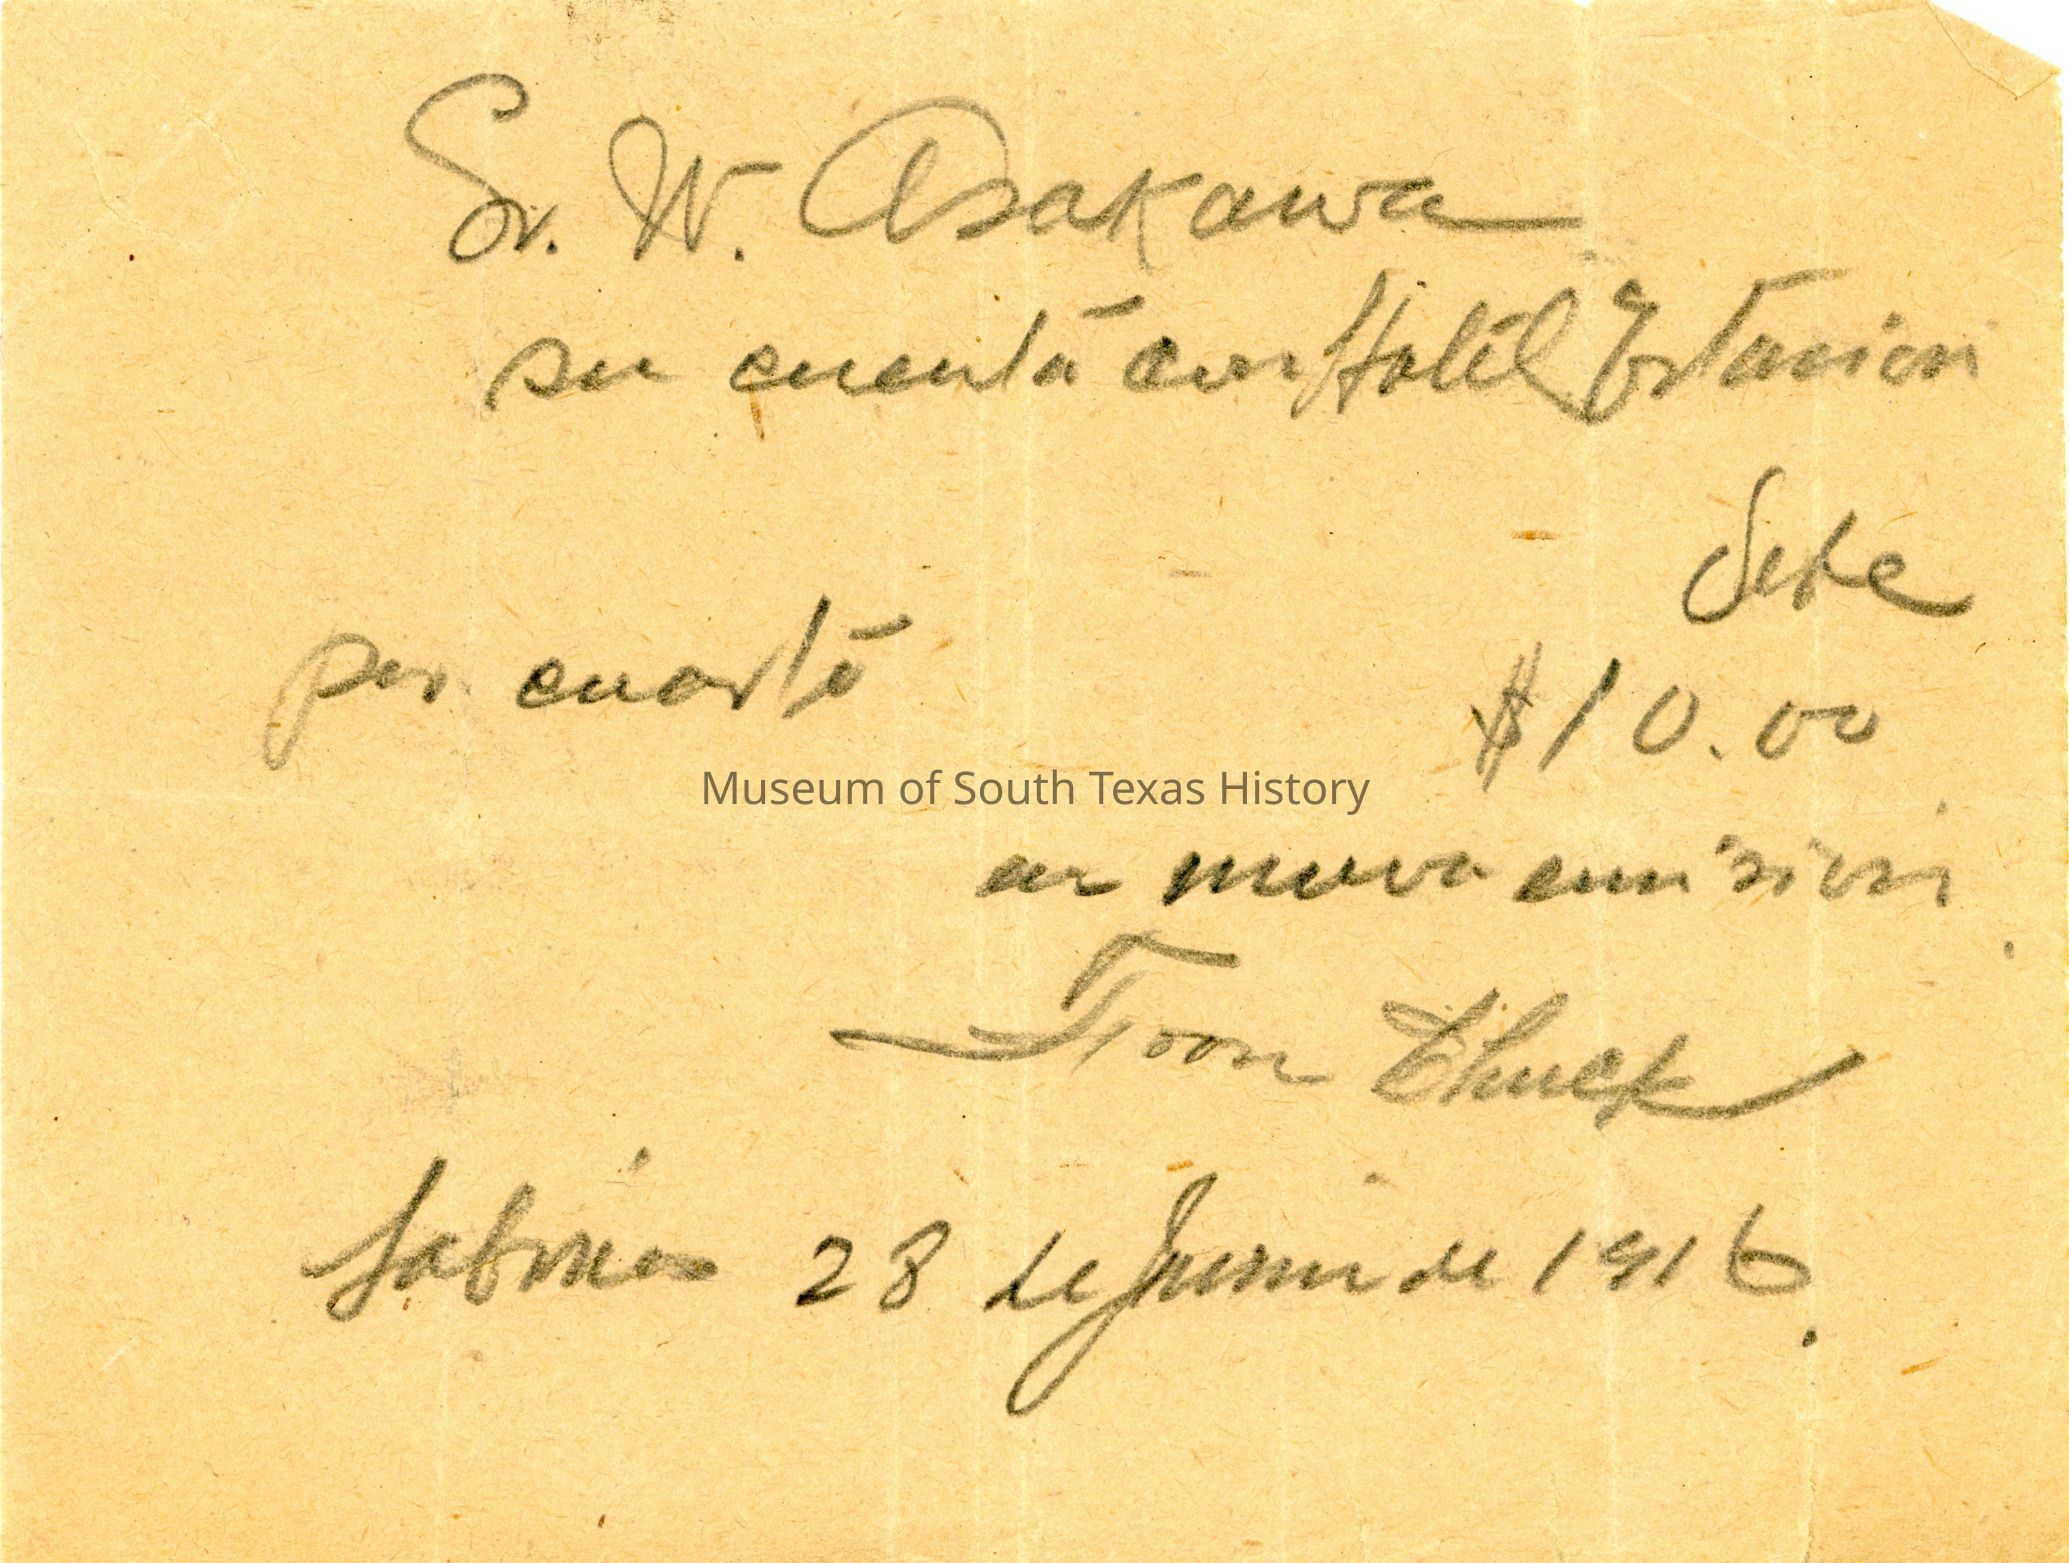 Sr. W. Asakawa
su cuenta con Hotel Estacion
Debe
por cuarto
$10.00
Museum of South Texas History
en nueva emision.
Foon Chuck
Sabinas 28 de Junio de 1916.